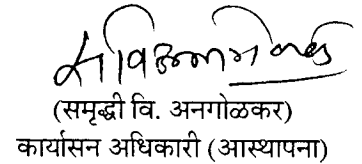 (समृद्धी वि. अनगोळकर)
कार्यासन अधिकारी (आस्थापना)